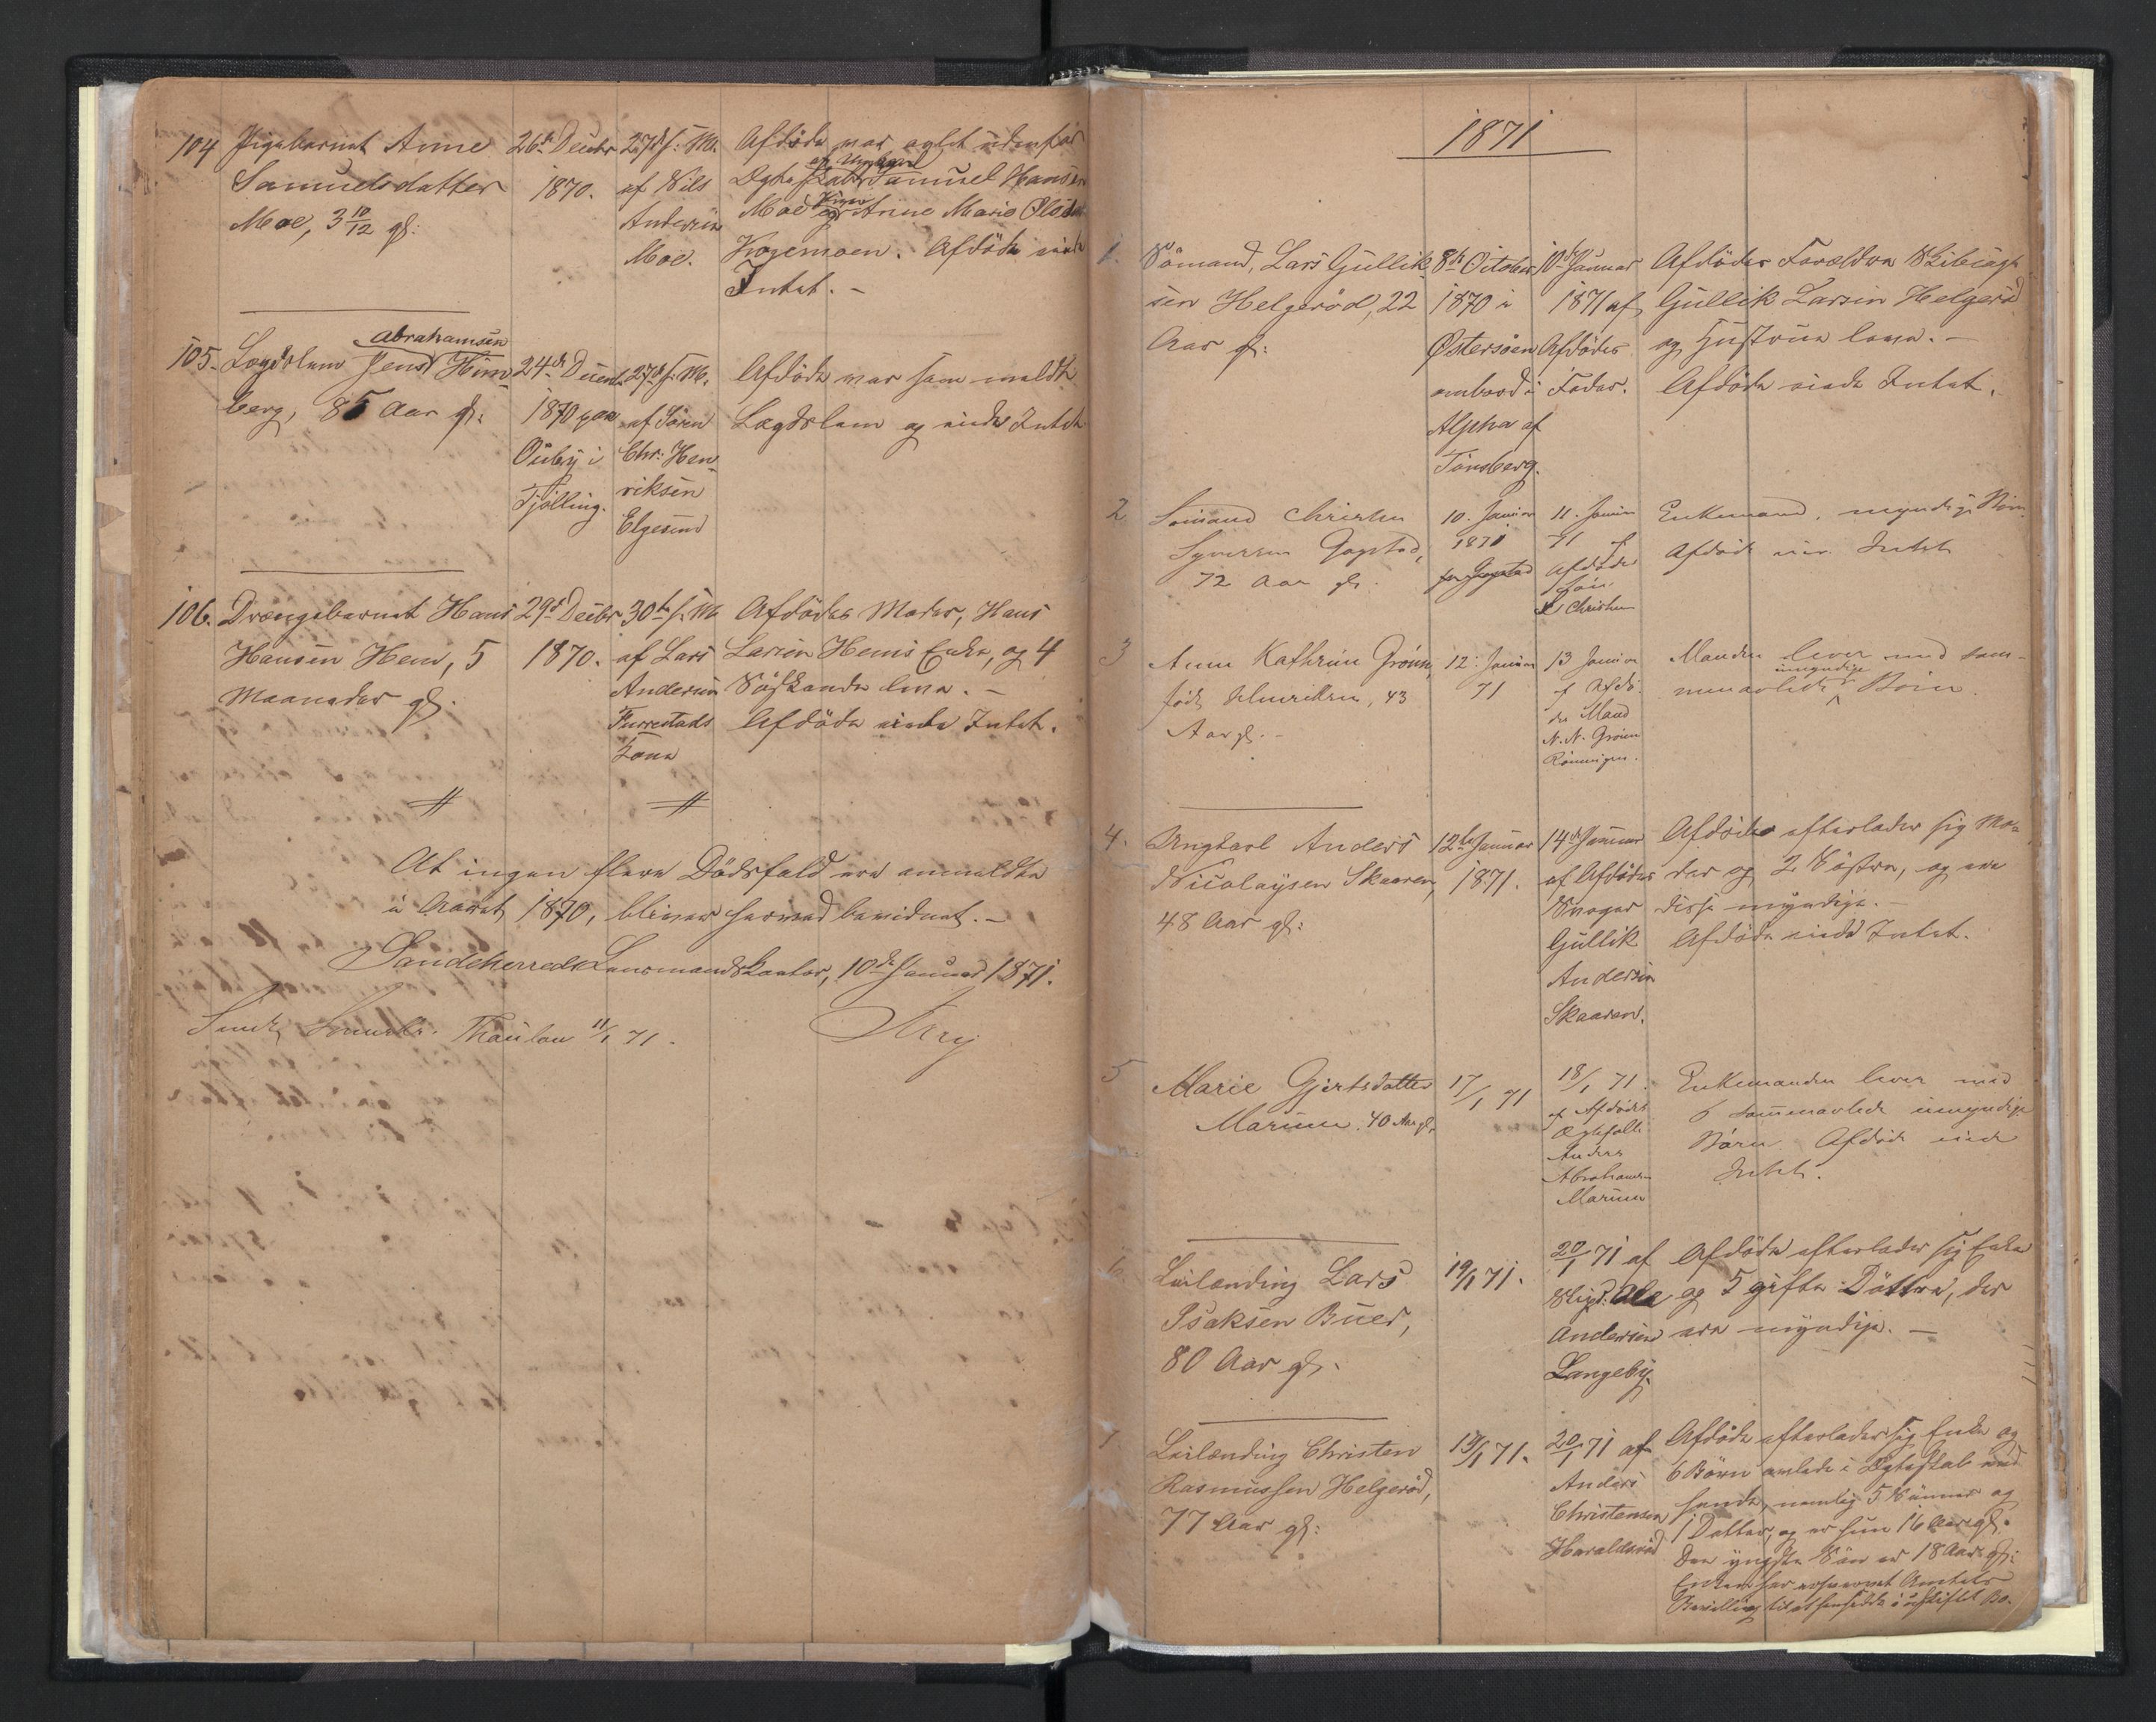 104 Pigebarnet Anne
Samuelsdatter
Moe, 3 10/12 gl:
26de Decbr
1870.
27de s. M.
af Nils
Andersen
Moe.
Afdøde var avlet udenfor
Ægteskab af Ungkarl Samuel Hansen
Moe og Anne Marie Olsdatter
Afdøde eiede
Intet. -
105. Lægdslem Jens Abrahamsen Him-
berg, 85 Aar gl:
24de Decembr
1870 paa
Ouby i
Tjølling.
27de s. M.
af Sören
Chr. Hen-
riksen
Elgesem
Afdøde var som meldt
Lægdslem og eiede Intet
106. Drængebarnet Hans
Hansen Hem, 5
Maaneder gl.
29de Decbr
1870.
30te s. M
af Lars
Andersen
Furustads
Kone
Afdødes Moder, Hans
Larsen Hems Enke, og 4
Søskende leve. -
Afdøde eiede Intet.
At ingen flere Dödsfald ere anmeldte
i Aaret 1870, bliver herved bevidnet. -
Sandeherreds Lensmandskontor, 10de Januar 1871.
Thaulow 11/1 71.
1871
1. Sömand, Lars Gullik-
sen Helgeröd, 22
Aar gl:
8de October
1870 i
Østersøen
ombord i
Alpha af
Tönsberg.
10de Januar
1871 af
Afdødes
Fader.
Afdödes Forældre Skibsbygger
Gullik Larsen Helgeröd
og Hustrue leve. -
Afdöde eiede Intet.
2 Sömand Christen
Syversen Gogstad,
72 Aar gl.
10. Januar
1871
paa Gogstad
11. Januar
71 af
Afdødes
Søn
L Christen
Enkemand, myndige Börn
Afdøde eier Intet
3 Anne Kathrine Grönn,
født Henriksen, 43
Aar gl. -
12. Januar
71
13 Januar
af Afdö-
des Mand
N. N. Grönn
Rönningen.
Manden lever med sam-
menavlede umyndige Börn.
4. Ungkarl Anders
Nicolaysen Skaaren,
48 Aar gl:
12te Januar
1871.
14de Januar
af Afdødes
Svoger
Gullik
Andersen
Skaaren.
Afdøde efterlader sig Mo-
der og 2 Söstre, og ere
disse myndige. -
Afdöde eiede Intet.
5 Marie Gjertsdatter
Marum. 40 Aar gl.
17/1 71
18/1 71.
af Afdødes
Ægtefælle
Anders
Abrahamsen
Marum
Enkemanden lever med
6 sammenavlede umyndige
Börn Afdøde eiede
Intet.
6. Leilænding Lars
Isaksen Buer,
80 Aar gl.
19/1 71.
20/1 71 af
Ole
Andersen
Langeby.
Afdöde efterlader sig Enke
og 5 gifte Döttre, der
ere myndige. -
7. Leilænding Christen
Rasmussen Helgeröd,
77 Aar gl:
19/1 71.
20/1 71 af
Anders
Christensen
Haraldsröd
Afdöde efterlader sig Enke og
6 Börn avlede i Ægteskab med
hende, nemlig 5 Sönner og
1 Datter, og er hun 16 Aar gl.
Den yngste Sön er 18 Aar gl:
Enken har erhvervet Amtets
Bevilling til at hensidde i uskiftet Bo.